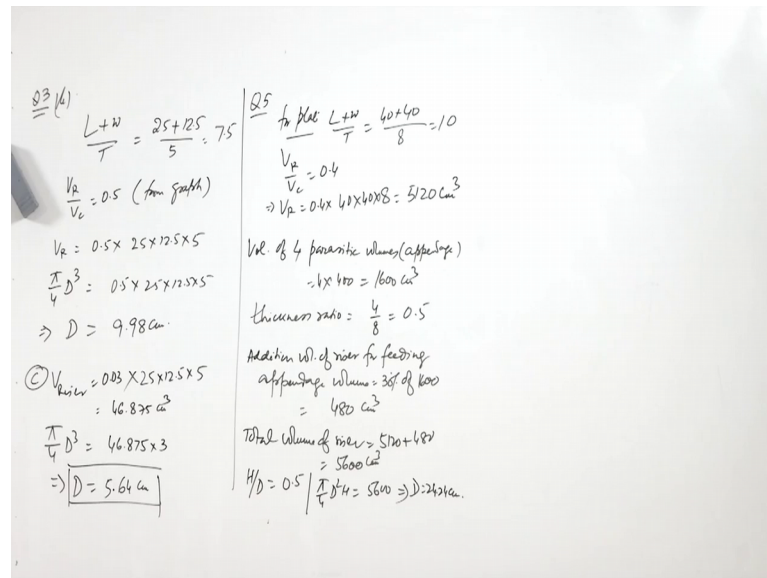 Q3 (b)
L+W / T = 25+12.5 / 5 = 7.5
VR / Vc = 0.5 (from graph)
VR = 0.5 x 25x12.5x5
π/4 D³ = 0.5 x 25x12.5x5
⇒ D = 9.98 cm.
(C) VRiser = 0.03 x 25x12.5x5
= 46.875 cm³
π/4 D³ = 46.875x3
⇒ D = 5.64 cm
Q5
for plate L+W / T = 40+40 / 8 = 10
VR / Vc = 0.4
⇒ VR = 0.4x 40x40x8 = 5120 cm³
Vol. of 4 parasitic volumes (appendage)
= 4x 400 = 1600 cm³
thickness ratio = 4/8 = 0.5
Addition vol. of riser for feeding
appendage volume = 30% of 1600
= 480 cm³
Total volume of riser = 5120+480
= 5600 cm³
H/D = 0.5 | π/4 D²H = 5600 ⇒ D = 24.24 cm.